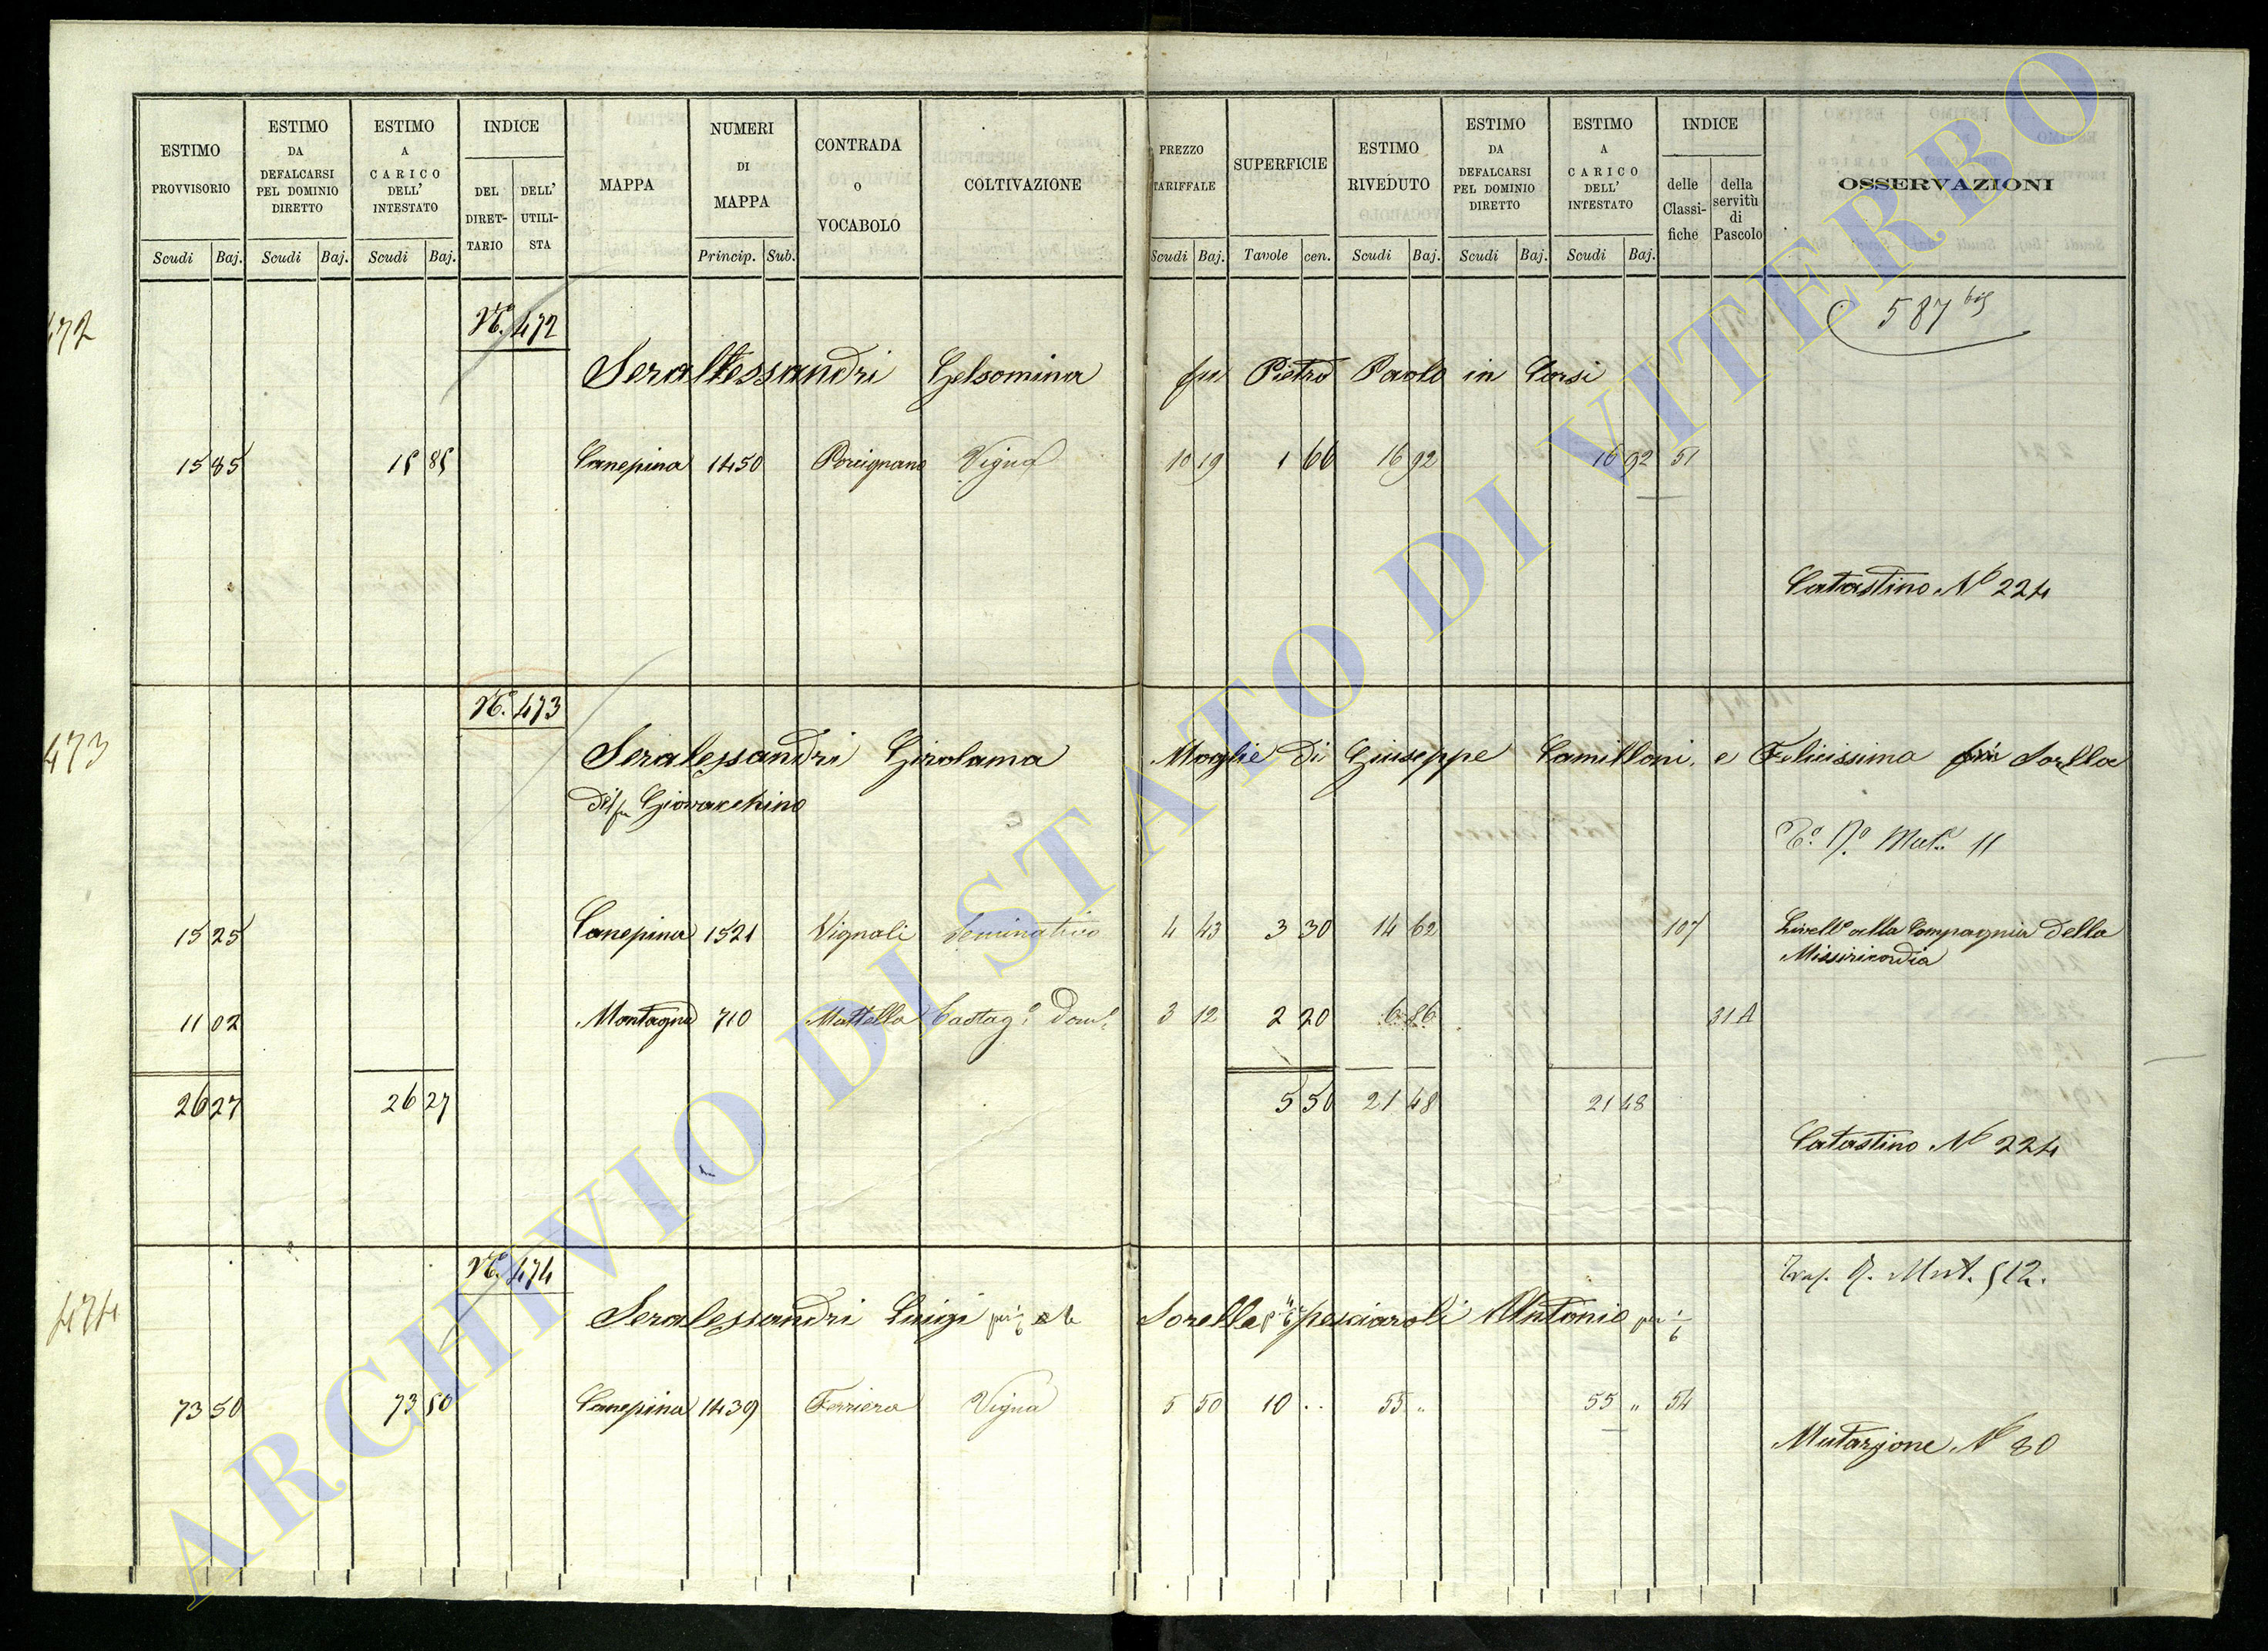 ESTIMO PROVVISORIO Scudi Baj.
ESTIMO DA DEFALCARSI PEL DOMINIO DIRETTO Scudi Baj.
ESTIMO A CARICO DELL' INTESTATO Scudi Baj.
INDICE DEL DIRET-TARIO DELL' UTILI-STA
MAPPA
NUMERI DI MAPPA Princip. Sub.
CONTRADA O VOCABOLO
COLTIVAZIONE
PREZZO TARIFFALE Scudi Baj.
SUPERFICIE Tavole cen.
ESTIMO RIVEDUTO Scudi Baj.
ESTIMO DA DEFALCARSI PEL DOMINIO DIRETTO Scudi Baj.
ESTIMO A CARICO DELL' INTESTATO Scudi Baj.
INDICE delle Classi-fiche della servitù di Pascolo
OSSERVAZIONI
472 N.° 472 587 bis
Seralessandri Gelsomina fu Pietro Paolo in Corsi
15 85 15 85 Canepina 1450 Porcignano Vigna 10 19 1 66 16 92 16 92 51
Catastino N° 224
473 N.° 473
Seralessandri Girolama Moglie di Giuseppe Camilloni, e Felicissima Sorella
del fu Giovacchino
11
15 25 Canepina 1521 Vignali Seminativo 4 43 3 30 14 62 107 Livell° alla Compagnia della
Missiricordia
11 02 Montagna 710 Mattella Castag.° Dom.° 3 12 2 20 6 86 31 A
26 27 26 27 5 50 21 48 21 48
Catastino N° 224
474 N.° 474 Trasp. Mut. 512.
Seralessandri Luigi per 1/6 e le Sorelle p 4/6 pesciaroli Antonio per 1/6
73 50 73 50 Canepina 1439 Ferriera Vigna 5 50 10 .. 55 " 55 " 54
Mutazione N° 80
ARCHIVIO DI STATO DI VITERBO